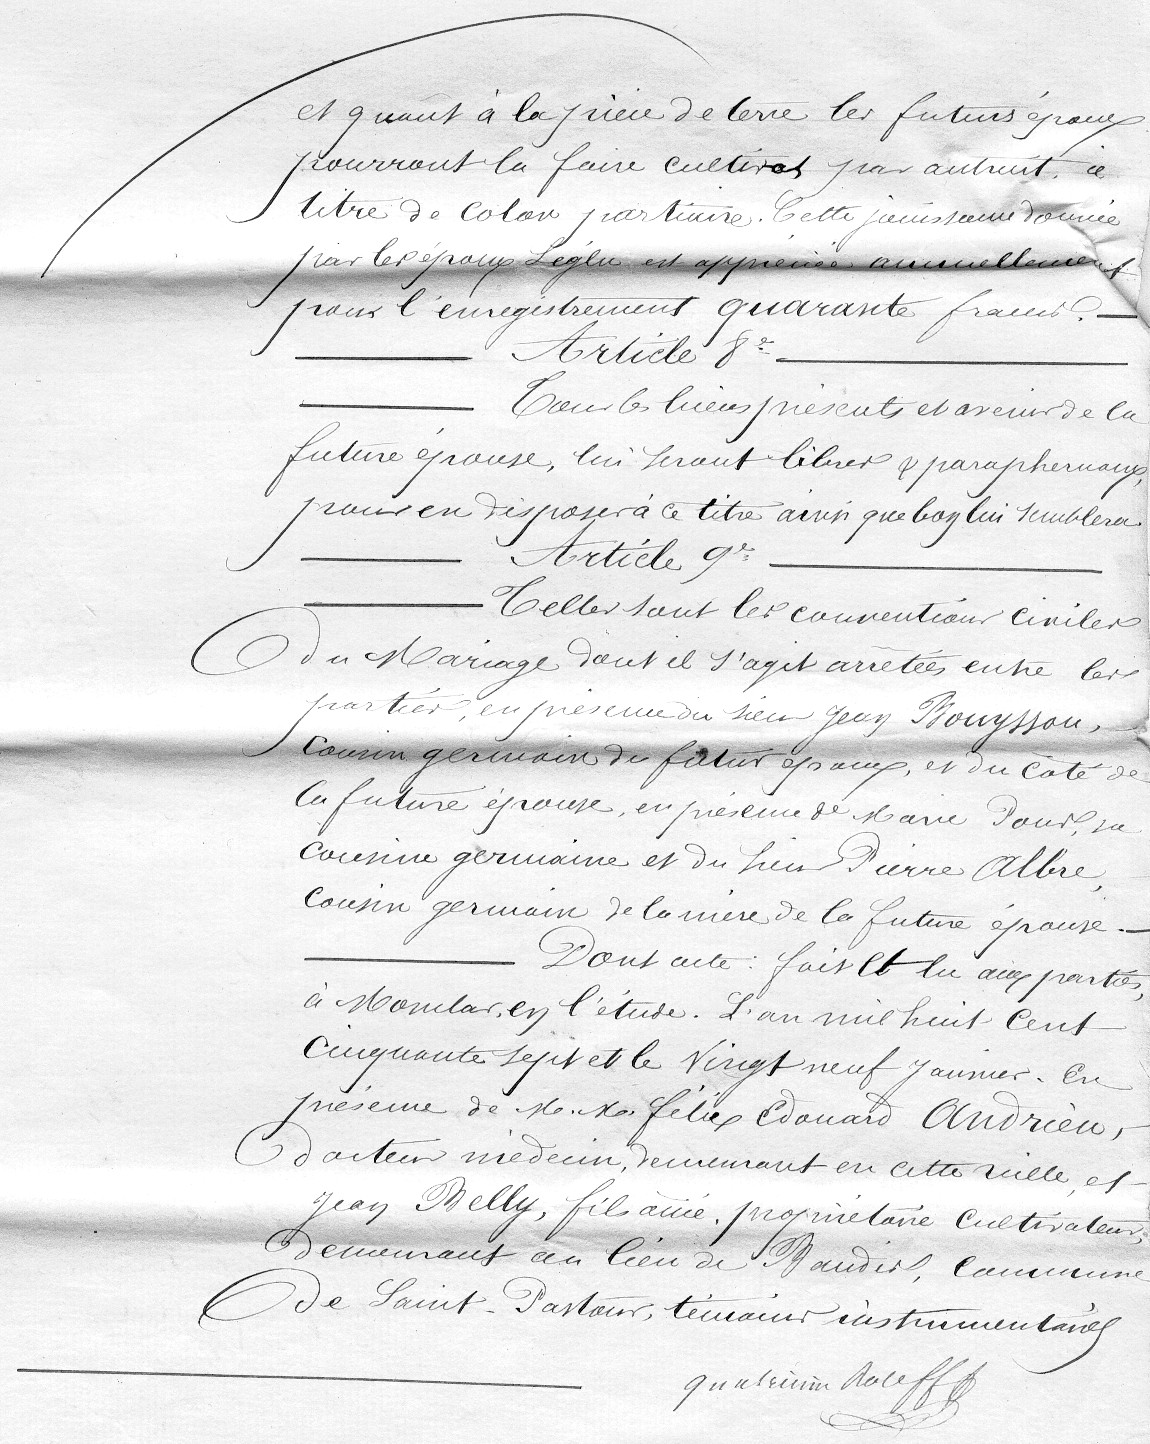 et quant à la pièce de terre les futurs époux
pourront la faire cultiver par autruit, à
titre de colon partiaire. Cette jouissance donnée
par les époux Léglu est appréciée annuellement
pour l'enregistrement quarante francs.
Article 8e
Tous les biens présents et avenir de la
future épouse, lui seront libres & paraphernaux,
pour en disposer à ce titre ainsi que bon lui semblera
Article 9e
Telles sont les conventions civiles
du Mariage dont il s'agit arrêtées entre les
parties, en présence du sieur Jean Bouyssou,
cousin germain du futur époux, et du côté de
la future épouse, en présence de Marie Pons, sa
cousine germaine et du sieur Pierre Albre,
cousin germain de la mère de la future épouse.
Dont acte: fait et lu aux parties,
à Monclar, en l'étude. L'an mil huit cent
cinquante sept et le vingt neuf janvier. En
présence de M.M. félix Edouard Andrieu,
docteur médecin, demeurant en cette ville, et
Jean Belly, fils ainé, propriétaire cultivateur,
demeurant au lieu de Baudis, commune
de Saint-Pastour, témoins instrumentaires